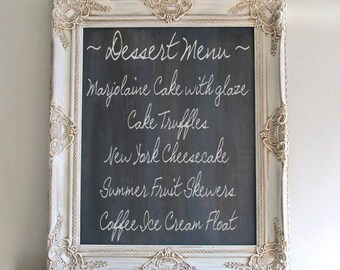 ~ Dessert Menu ~
Marjolaine Cake with glaze
Cake Truffles
New York Cheesecake
Summer Fruit Skewers
Coffee Ice Cream Float